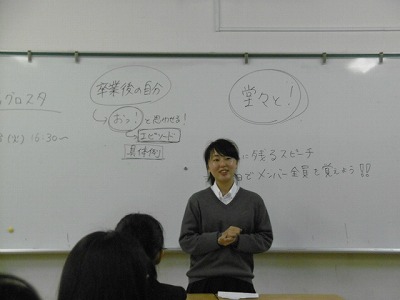 卒業後の自分
堂々と!
グロスタ
おっ!と思わせる!
(火) 16:30〜
エピソード
具体例
に残るスピーチ
でメンバー全員を覚えよう!!